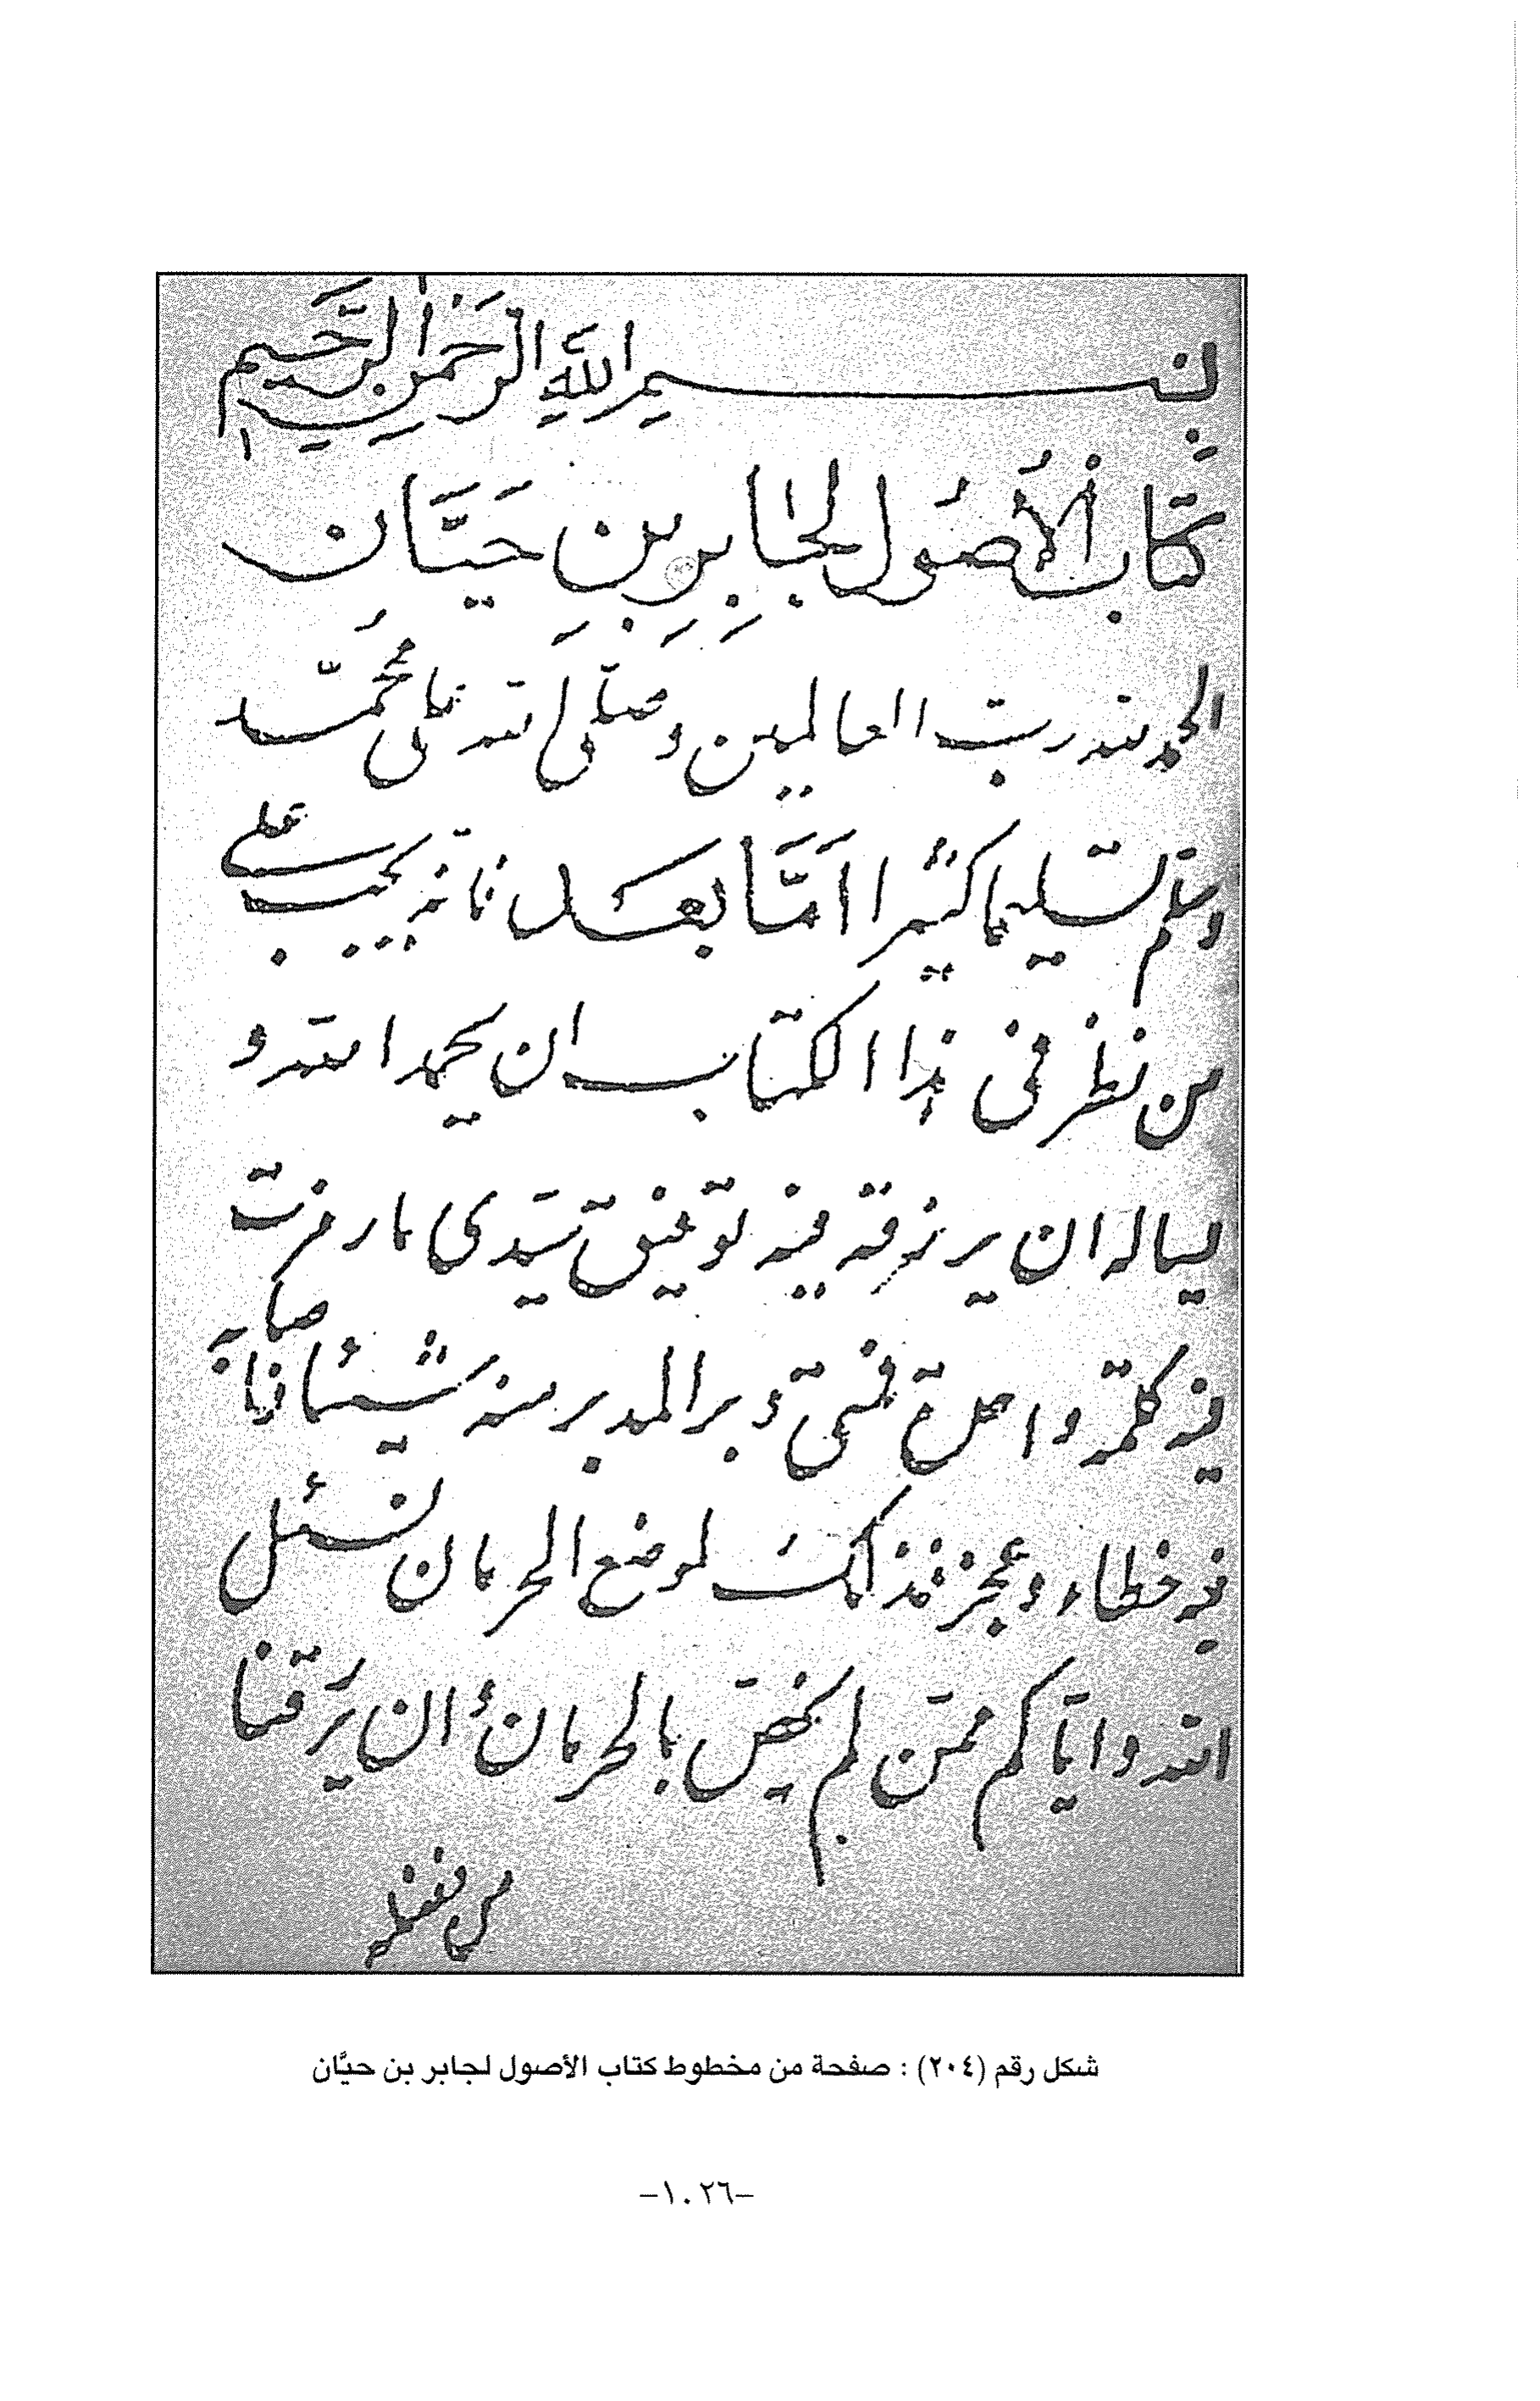 بِسم اللهِ الرَّحمنِ الرَّحيم
كتَاب الأُصُول لجابِرِ بنِ حَيَّان
الحمد لله رب العالمين وصلّى الله على محمَّد
وسلم تسليما كثيرا امَّا بعد فانه يجب على
من نظر فى هذا الكتاب ان يحمد الله و
يساله ان يرزقه فيه توفيق سَدى ما رمزت
فيه كلمة واحدة فمتى دبر المدبر منه شيئا فاصابه
فيه خطاء وعجز فذلك لموضع الحرمان نسئل
الله واياكم ممّن لم يخصّ بالحرمان ان يرزقنا
من فضله
شكل رقم (٢٠٤) : صفحة من مخطوط كتاب الأصول لجابر بن حيَّان
–١٠٢٦–